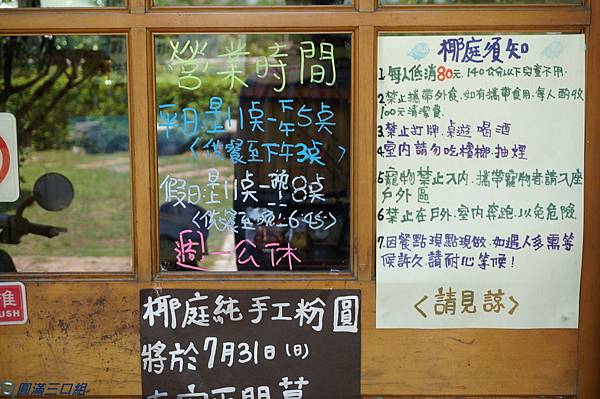 營業時間
平日:早11点~下午5点
〈供餐至下午3点〉
假日:早11点~晚8点
〈供餐至晚:6:45〉
週一公休
椰庭純手工粉圓
將於7月31日(日)
椰庭須知
1.每人低消80元,140公分以下兒童不用.
2.禁止攜帶外食,如有攜帶食用,每人酌收
100元清潔費.
3.禁止打牌.桌遊.喝酒
4.室內請勿吃檳榔.抽煙
5.寵物禁止入內.攜帶寵物者請入座
戶外區
6.禁止在戶外.室內奔跑.以免危險.
7.因餐點現點現做.如遇人多需等
候許久.請耐心等候!
〈請見諒〉
推
PUSH
圓滿三口組